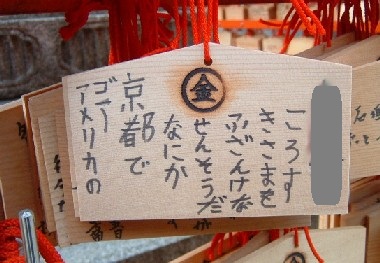 金
ころす
きさまを
ふざんけな
せんそうだ
なにか
京都で
ゴー
アメリカの